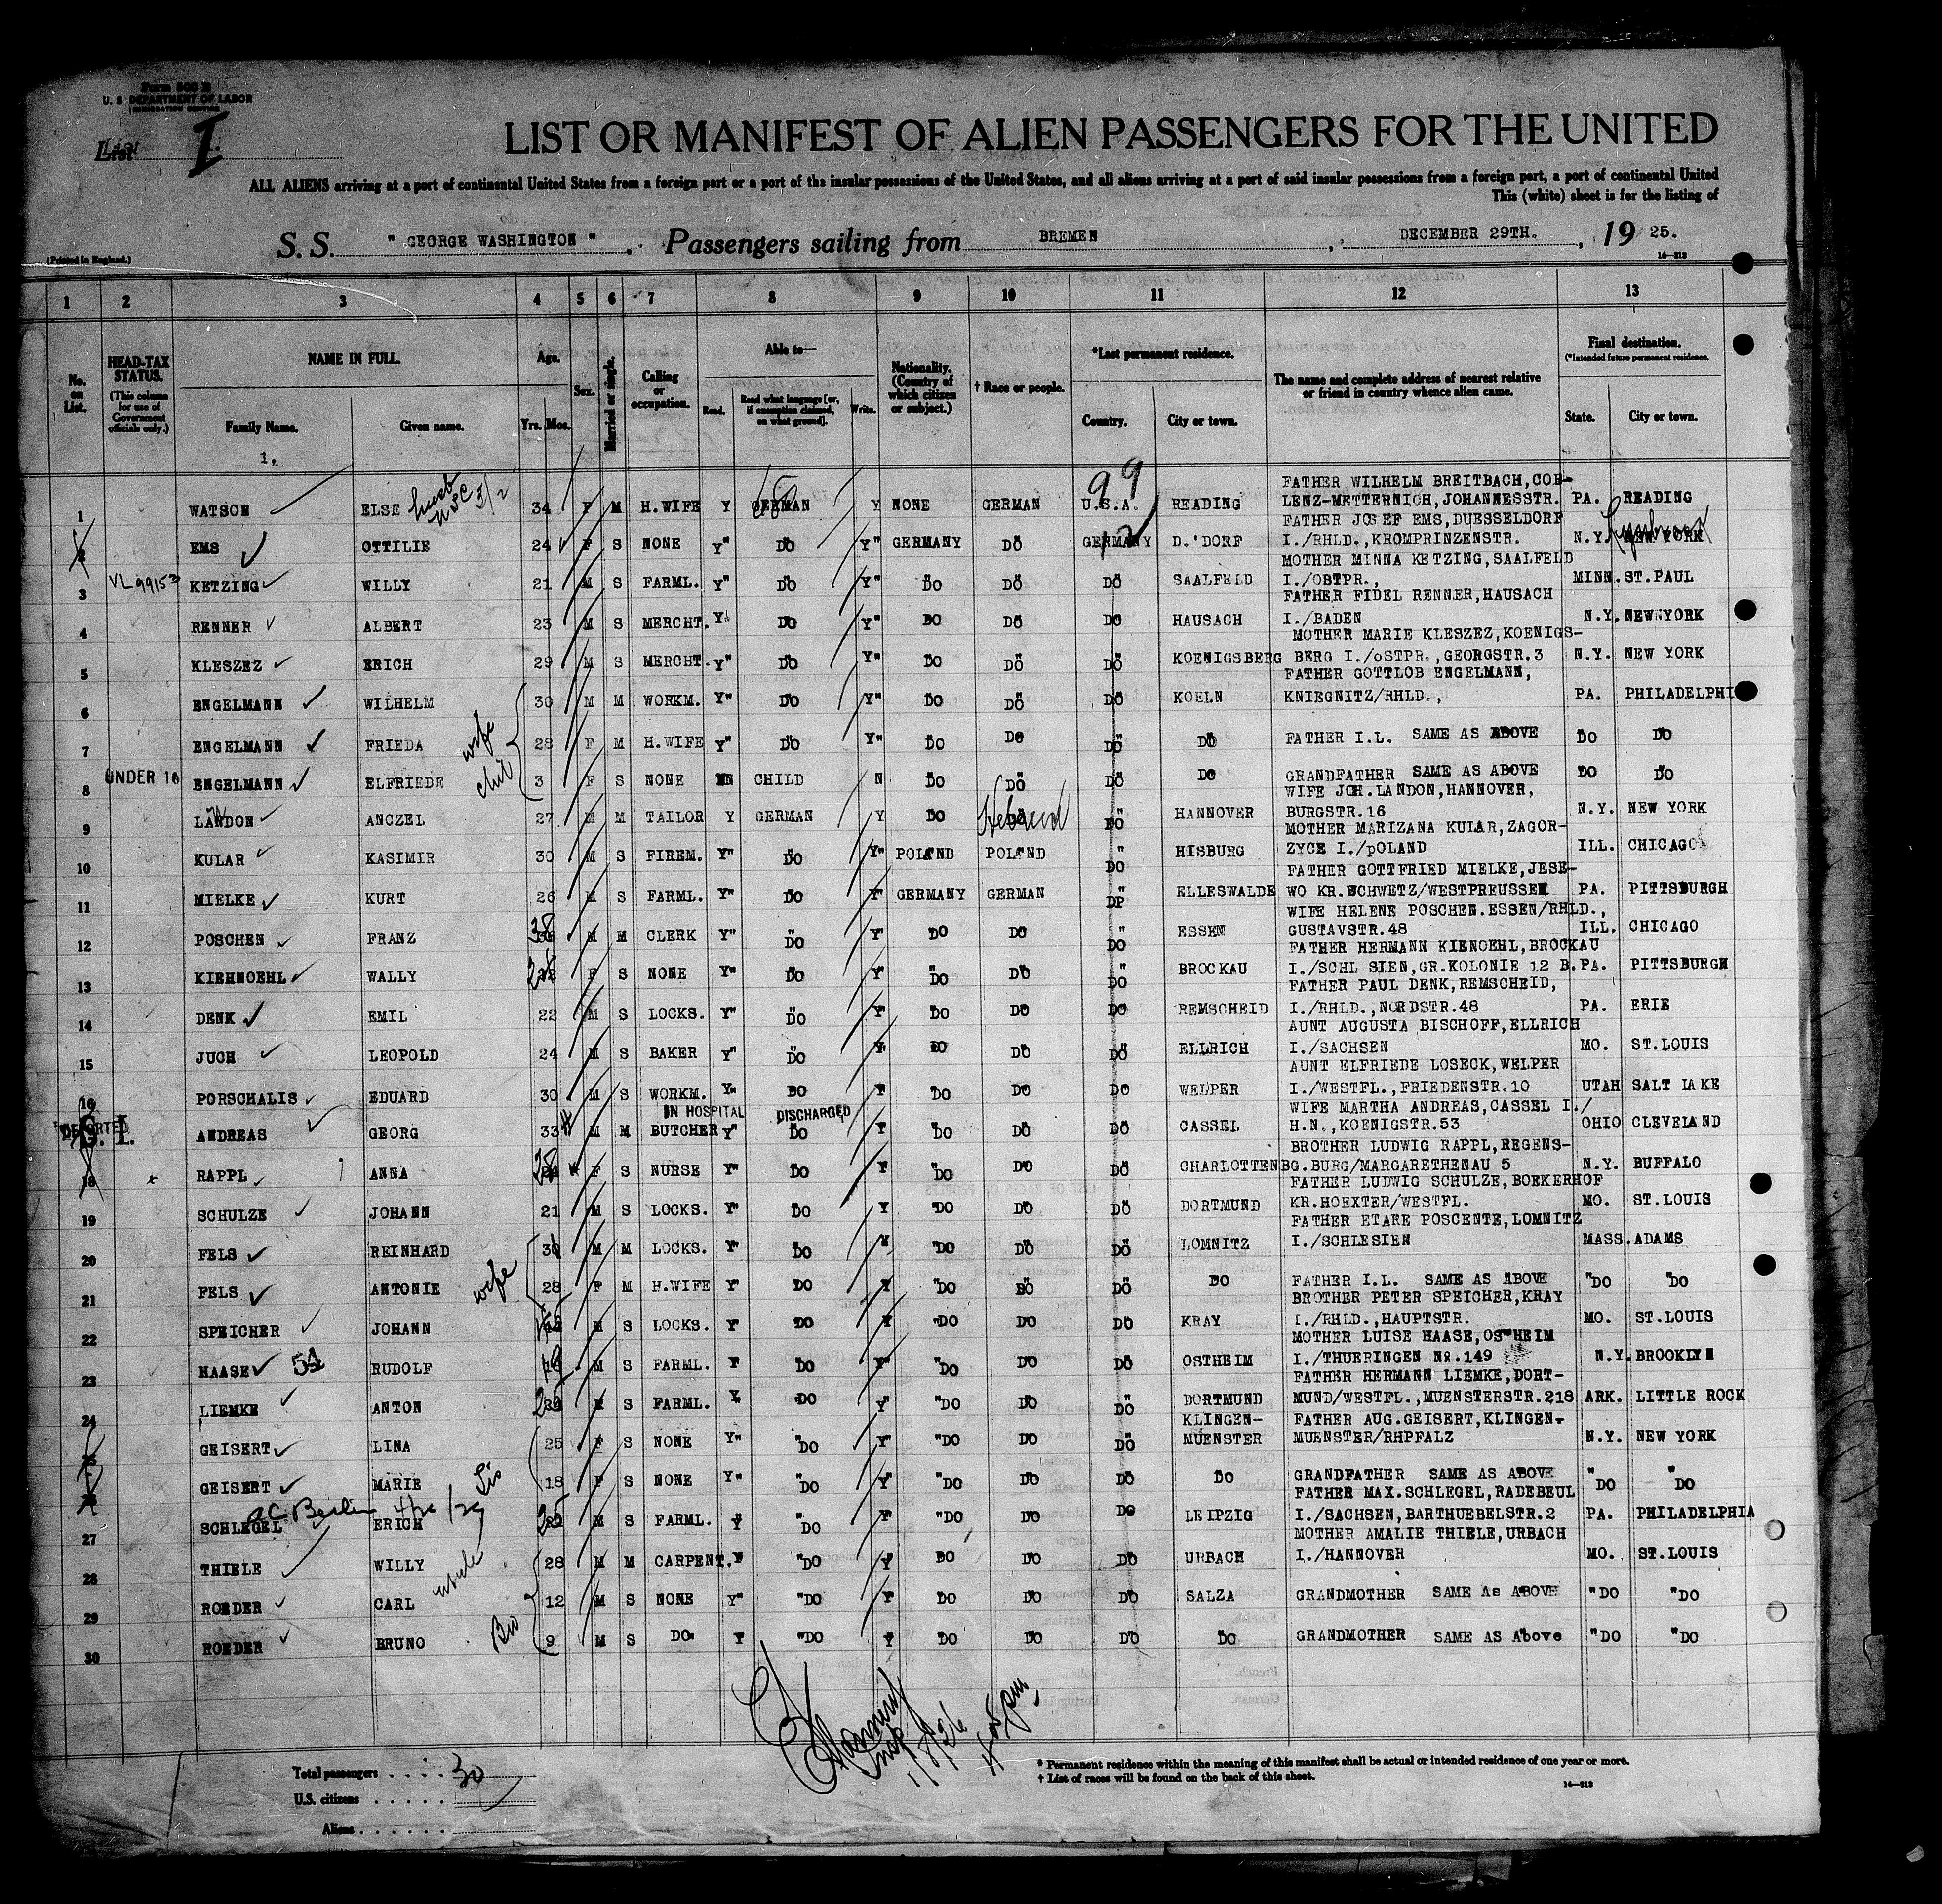 Form 500 B
U. S. DEPARTMENT OF LABOR
IMMIGRATION SERVICE
List I.
LIST OR MANIFEST OF ALIEN PASSENGERS FOR THE UNITED
ALL ALIENS arriving at a port of continental United States from a foreign port or a port of the insular possessions of the United States, and all aliens arriving at a port of said insular possessions from a foreign port, a port of continental United
This (white) sheet is for the listing of
S. S. " GEORGE WASHINGTON ". Passengers sailing from BREMEN, DECEMBER 29TH., 19 25.
(Printed in England.) 14—213
1 2 3 4 5 6 7 8 9 10 11 12 13
No. on List. HEAD-TAX STATUS. (This column for use of Government officials only.) NAME IN FULL. Age. Sex. Married or single. Calling or occupation. Able to— Nationality. (Country of which citizen or subject.) † Race or people. *Last permanent residence. The name and complete address of nearest relative or friend in country whence alien came. Final destination. (*Intended future permanent residence.
Family Name. Given name. Yrs. Mos. Read. Read what language [or, if exemption claimed, on what ground]. Write. Country. City or town. State. City or town.
1.
99
FATHER WILHELM BREITBACH,COB-
1 WATSON ELSE husb 34 F M H.WIFE Y GERMAN Y NONE GERMAN U.S.A. READING LENZ-METTERNICH,JOHANNESSTR. PA. READING
FATHER JOSEF EMS,DUESSELDORF
2 EMS OTTILIE 24 F S NONE Y" DO Y" GERMANY DO GERMANY D.'DORF I./RHLD.,KROMPRINZENSTR. N.Y. NEW YORK
MOTHER MINNA KETZING,SAALFELD
3 KETZING WILLY 21 M S FARML. Y" DO Y" DO DO DO SAALFELD I./OSTPR., MINN. ST.PAUL
FATHER FIDEL RENNER,HAUSACH
4 RENNER ALBERT 23 M S MERCHT. Y" DO Y" DO DO DO HAUSACH I./BADEN N.Y. NEWNYORK
MOTHER MARIE KLESZEZ,KOENIGS-
5 KLESZEZ ERICH 29 M S MERCHT. Y" DO Y" DO DO DO KOENIGSBERG BERG I./OSTPR.,GEORGSTR.3 N.Y. NEW YORK
FATHER GOTTLOB ENGELMANN,
6 ENGELMANN WILHELM 30 M M WORKM. Y" DO Y" DO DO DO KOELN KNIEGNITZ/RHLD., PA. PHILADELPHI
7 ENGELMANN FRIEDA wife 28 F M H.WIFE Y" DO Y" DO DO DO DO FATHER I.L. SAME AS ABOVE DO DO
8 UNDER 16 ENGELMANN ELFRIEDE 3 F S NONE N CHILD N DO DO DO DO GRANDFATHER SAME AS ABOVE DO DO
WIFE JOH.LANDON,HANNOVER,
9 LANDON ANCZEL 27 M M TAILOR Y GERMAN Y DO Hebrew DO HANNOVER BURGSTR.16 N.Y. NEW YORK
MOTHER MARIZANA KULAR,ZAGOR-
10 KULAR KASIMIR 30 M S FIREM. Y" DO Y" POLAND POLAND DO HISBURG ZYCE I./POLAND ILL. CHICAGO
FATHER GOTTFRIED MIELKE,JESE-
11 MIELKE KURT 26 M S FARML. Y" DO Y" GERMANY GERMAN DP ELLESWALDE WO KR.SCHWETZ/WESTPREUSSEN PA. PITTSBURGH
WIFE HELENE POSCHEN.ESSEN/RHLD.,
12 POSCHEN FRANZ 38 M M CLERK Y" DO Y" DO DO DO ESSEN GUSTAVSTR.48 ILL. CHICAGO
FATHER HERMANN KIENOEHL,BROCKAU
13 KIEHNOEHL WALLY F S NONE Y" DO Y" DO DO DO BROCKAU I./SCHL SIEN,GR.KOLONIE 12 B. PA. PITTSBURGH
FATHER PAUL DENK,REMSCHEID,
14 DENK EMIL 22 M S LOCKS. Y" DO Y" DO DO DO REMSCHEID I./RHLD.,NORDSTR.48 PA. ERIE
AUNT AUGUSTA BISCHOFF,ELLRICH
15 JUCH LEOPOLD 24 M S BAKER Y" DO Y DO DO DO ELLRICH I./SACHSEN MO. ST.LOUIS
AUNT ELFRIEDE LOSECK,WELPER
16 PORSCHALIS EDUARD 30 M S WORKM. Y" DO Y DO DO DO WELPER I./WESTFL.,FRIEDENSTR.10 UTAH SALT LAKE
IN HOSPITAL DISCHARGED WIFE MARTHA ANDREAS,CASSEL I./
DEPORTED S. I. ANDREAS GEORG 33 M M BUTCHER Y" DO Y DO DO DO CASSEL H.N.,KOENIGSTR.53 OHIO CLEVELAND
BROTHER LUDWIG RAPPL,REGENS-
18 RAPPL ANNA F S NURSE Y" DO Y DO DO DO CHARLOTTENBG. BURG/MARGARETHENAU 5 N.Y. BUFFALO
FATHER LUDWIG SCHULZE,BORKERHOF
19 SCHULZE JOHANN 21 M S LOCKS. Y" DO Y DO DO DO DORTMUND KR.HOEXTER/WESTFL. MO. ST.LOUIS
FATHER ETARE POSCENTE,LOMNITZ
20 FELS REINHARD 30 M M LOCKS. Y" DO Y DO DO DO LOMNITZ I./SCHLESIEN MASS. ADAMS
21 FELS ANTONIE wife 28 F M H.WIFE Y" DO Y DO DO DO DO FATHER I.L. SAME AS ABOVE "DO "DO
BROTHER PETER SPEICHER,KRAY
22 SPEICHER JOHANN M S LOCKS. Y" DO Y DO DO DO KRAY I./RHLD.,HAUPTSTR. MO. ST.LOUIS
MOTHER LUISE HAASE,OSTHEIM
23 HAASE RUDOLF M S FARML. Y DO Y" DO DO DO OSTHEIM I./THUERINGEN No.149 N.Y. BROOKLYN
FATHER HERMANN LIEMKE,DORT-
24 LIEMKE ANTON M S FARML. Y DO Y" DO DO DO DORTMUND MUND/WESTFL.,MUENSTERSTR.218 ARK. LITTLE ROCK
KLINGEN- FATHER AUG.GEISERT,KLINGEN-
25 GEISERT LINA 25 F S NONE Y" DO Y" DO DO DO MUENSTER MUENSTER/RHPFALZ N.Y. NEW YORK
26 GEISERT MARIE Sis 18 F S NONE Y" DO Y" DO DO DO DO GRANDFATHER SAME AS ABOVE "DO "DO
FATHER MAX.SCHLEGEL,RADEBEUL
27 SCHLEGEL ERICH 25 M S FARML. Y "DO Y "DO DO DO LEIPZIG I./SACHSEN,BARTHUEBELSTR.2 PA. PHILADELPHIA
MOTHER AMALIE THIELE,URBACH
28 THIELE WILLY 28 M M CARPENT. Y "DO Y DO DO DO URBACH I./HANNOVER MO. ST.LOUIS
29 ROEDER CARL 12 M S NONE Y" "DO Y DO DO DO SALZA GRANDMOTHER SAME AS ABOVE "DO "DO
30 ROEDER BRUNO Bro 9 M S DO. Y "DO Y DO DO DO DO GRANDMOTHER SAME AS Above "DO "DO
Total passengers . . . . 30
U.S. citizens . . . . .
Aliens . . . . . .
* Permanent residence within the meaning of this manifest shall be actual or intended residence of one year or more.
† List of races will be found on the back of this sheet.
14—213